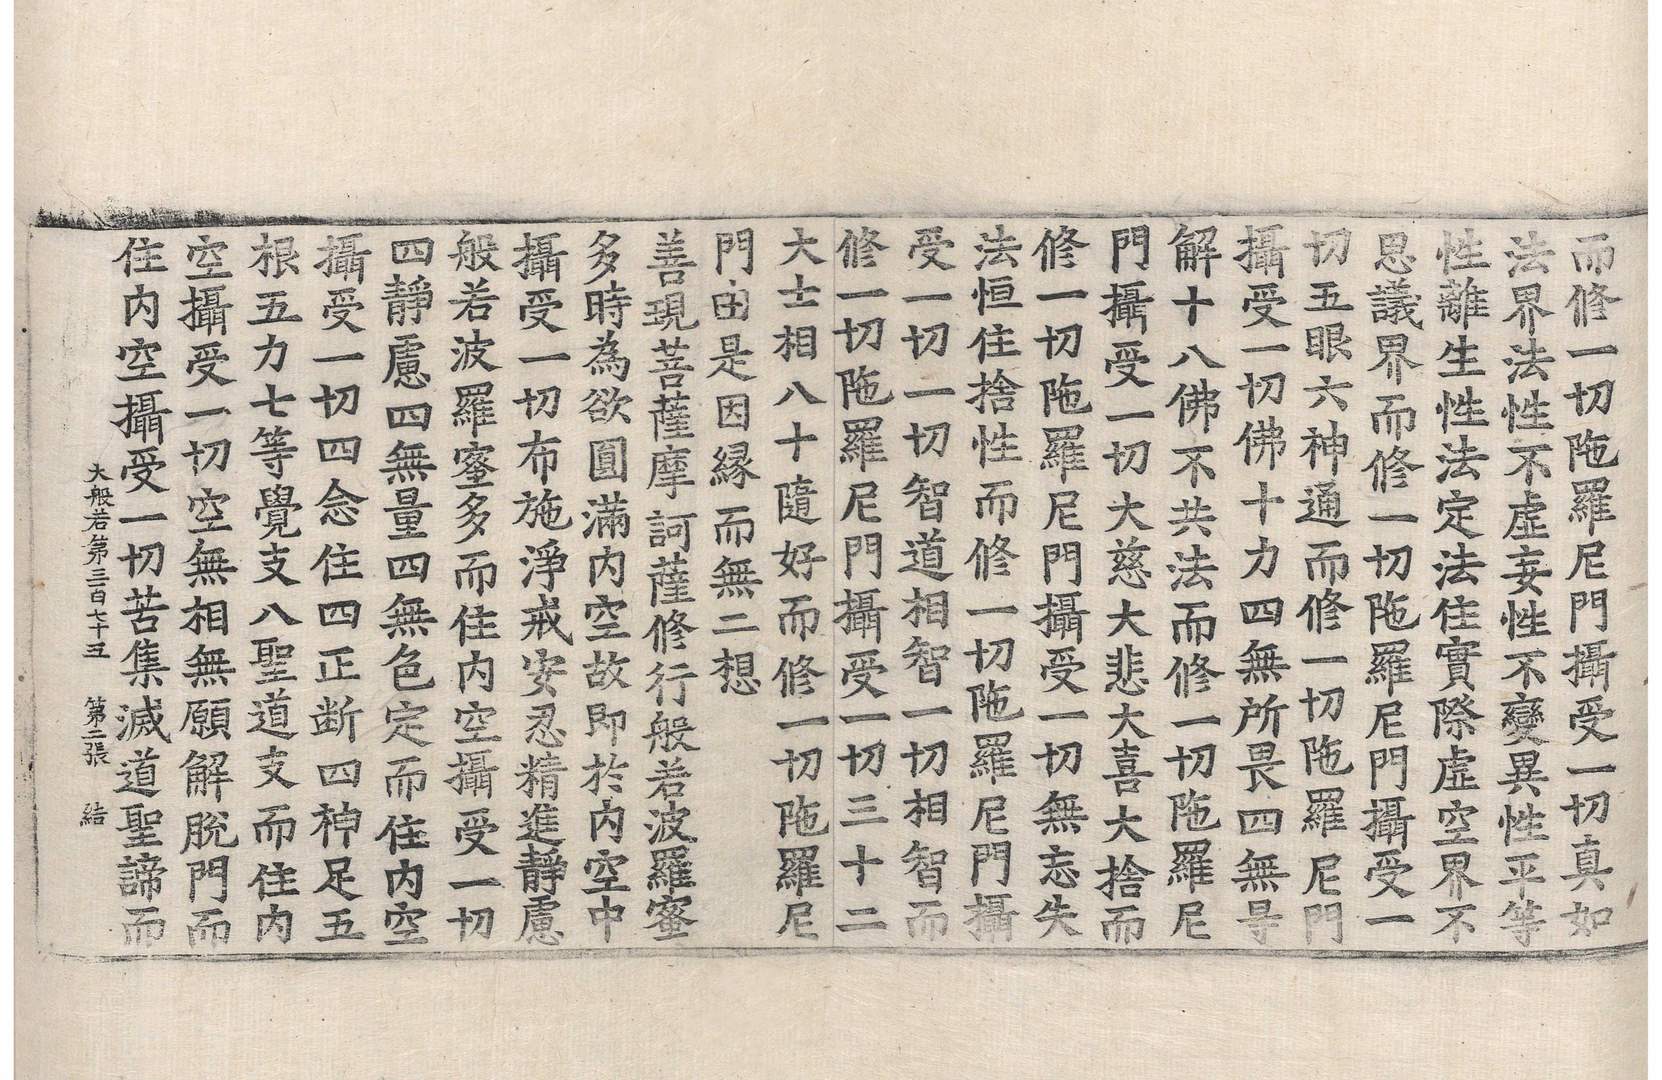 而修一切陁羅尼門攝受一切真如
法界法性不虛妄性不變異性平等
性離生性法定法住實際虛空界不
思議界而修一切陁羅尼門攝受一
切五眼六神通而修一切陁羅尼門
攝受一切佛十力四無所畏四無㝵
解十八佛不共法而修一切陁羅尼
門攝受一切大慈大悲大喜大捨而
修一切陁羅尼門攝受一切無忘失
法恒住捨性而修一切陁羅尼門攝
受一切一切智道相智一切相智而
修一切陁羅尼門攝受一切三十二
大士相八十隨好而修一切陁羅尼
門由是因緣而無二想
善現菩薩摩訶薩修行般若波羅蜜
多時為欲圓滿內空故即於內空中
攝受一切布施淨戒安忍精進靜慮
般若波羅蜜多而住內空攝受一切
四靜慮四無量四無色定而住內空
攝受一切四念住四正斷四神足五
根五力七等覺支八聖道支而住內
空攝受一切空無相無願解脫門而
住內空攝受一切苦集滅道聖諦而
大般若第三百七十五 第二張 結